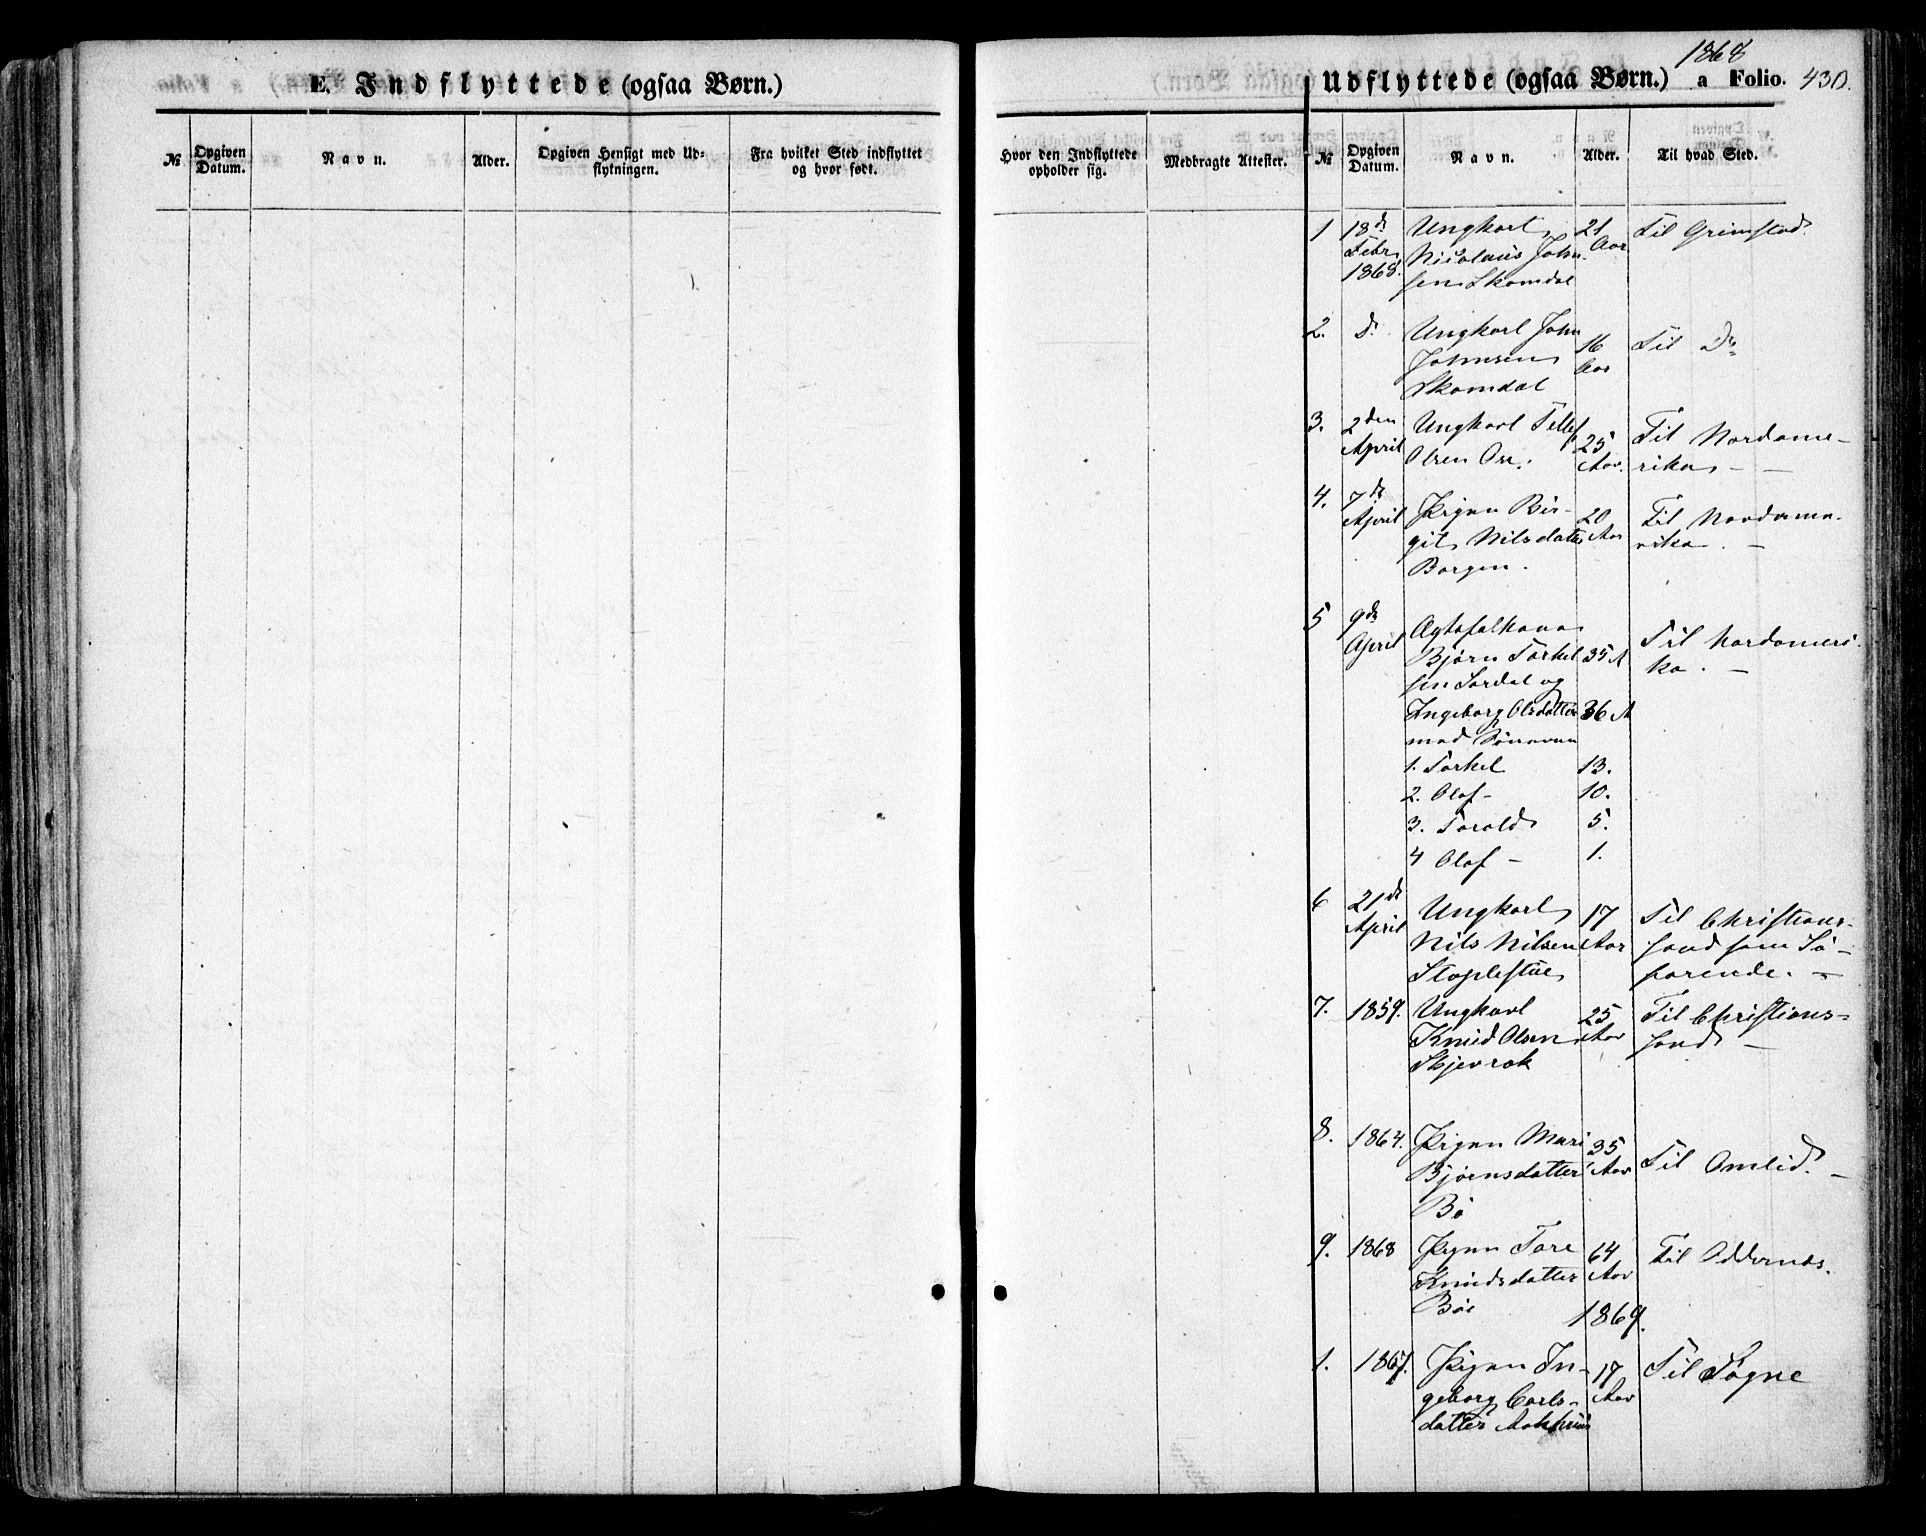 E. Indflyttede (ogsaa Børn.)
№
Opgiven Datum.
Navn.
Alder.
Opgiven Hensigt med Ud-
flytningen.
Fra hvilket Sted indflyttet
og hvor født.
1868
Udflyttede (ogsaa Børn.) a Folio. 430.
Hvor den Indflyttede
opholder sig.
Medbragte Attester.
№
Opgiven Datum.
Navn.
Alder.
Til hvad Sted.
1 18d Ungkarl 21 Til Grimstad.
Febr Nicolaus John- Aar
1868. sen Skomdal
2. d. Ungkarl John 16 Til Do
Johnsen Aar
Skomdal
3. 2den Ungkarl Tellef 25 Til Nordame-
April Olsen Ose. Aar. rika —
4. 7de Pigen Bir- 20 Til Nordame-
April git Nilsdatter Aar rika. —
Borgen.
5 9de Ægtefolkene Til Nordameri-
April Bjørn Torkel- 35 A ka. —
sen Sordal og
Ingeborg Olsdatter 36 A
med Sønnerne
1. Torkel 13.
2. Olaf - 10.
3. Torald 5.
4 Olaf - 1.
6 21de Ungkarl 17 Til Christian-
April Nils Nilsen Aar sand som Sø-
Staplestue farende. —
7. 1859. Ungkarl 25 Til Christians-
Knud Olsen Aar sand —
Skjevrak
8. 1864. Pigen Mari 35 Til Omlid. —
Bjørnsdatter Aar
Bö
9. 1868 Pigen Tore 64 Til Oddernes.
Knudsdatter Aar
Böe
1869.
1. 1867. Pigen In- 17 Til Søgne
geborg Carls- Aar
datter